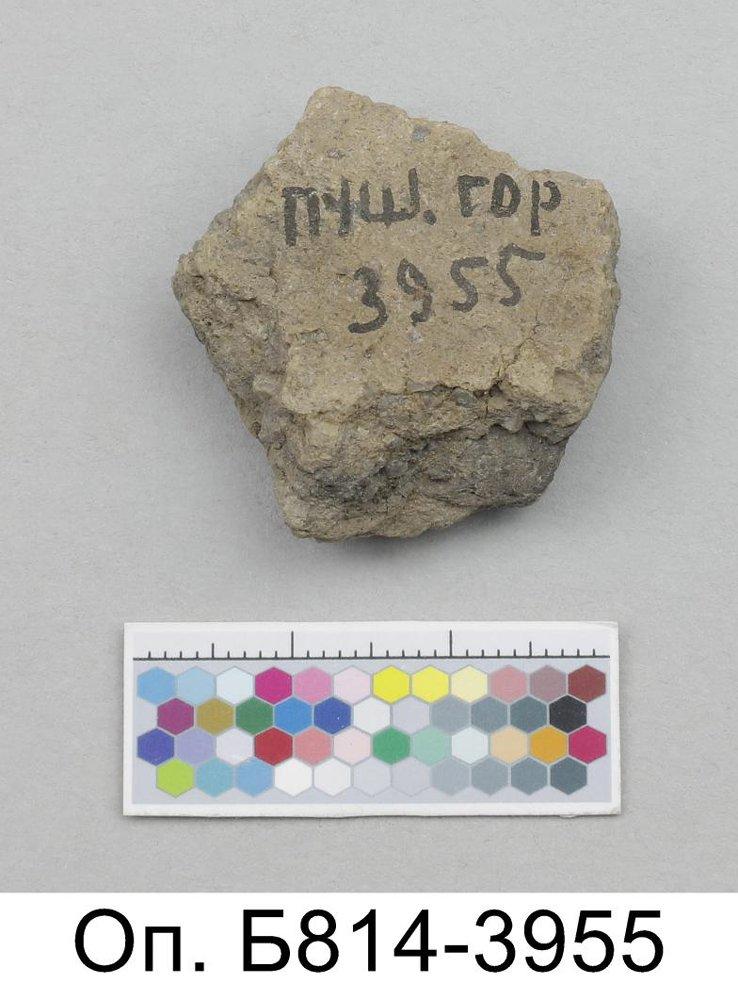 ПУШ. ГОР
3955
Оп. Б814-3955